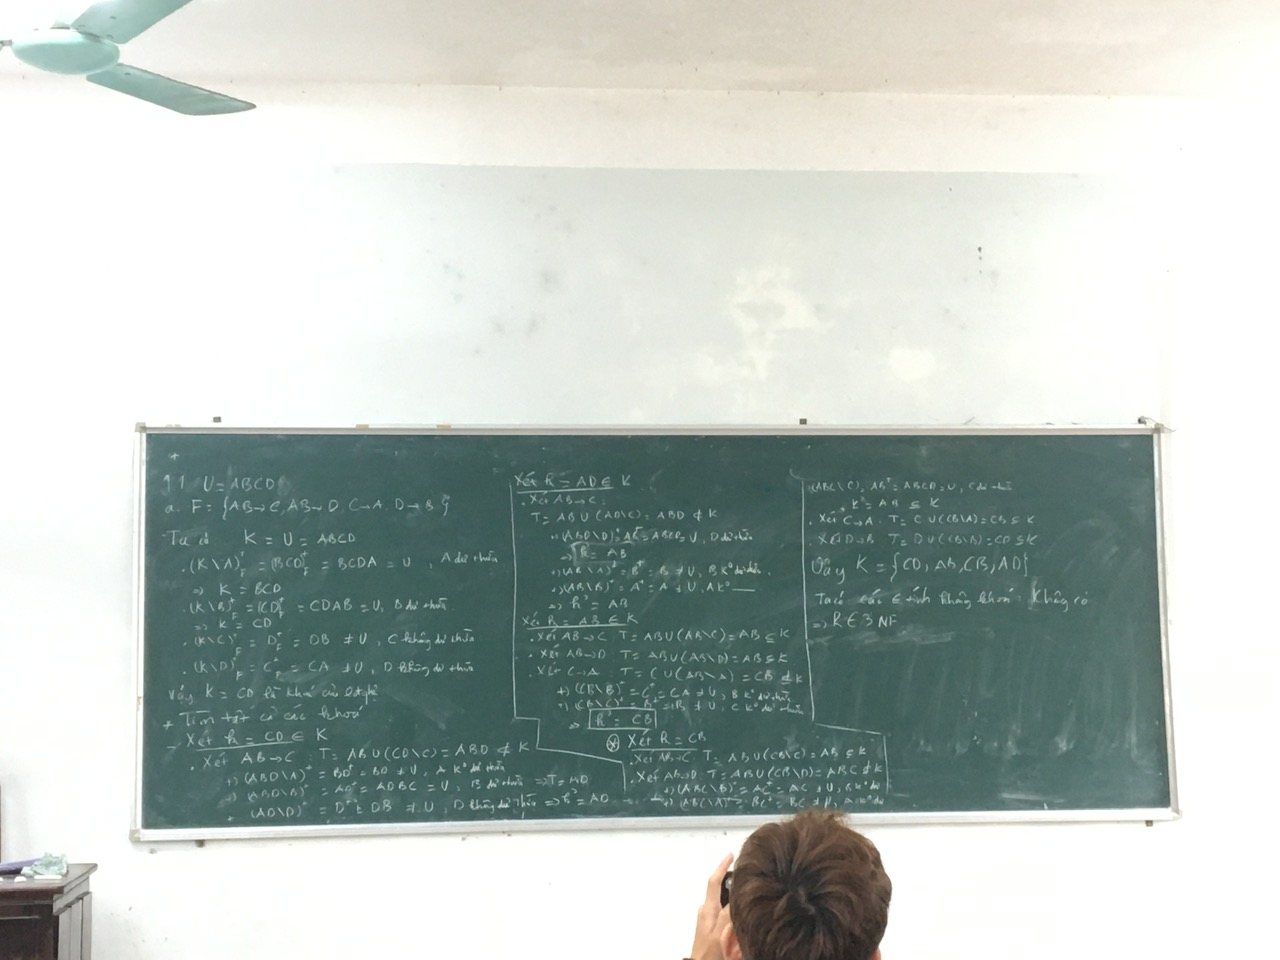 U = ABCD
a. F = {AB→C, AB→D, C→A, D→B}
Ta có K = U = ABCD
.(K\A)⁺F = (BCD)⁺F = BCDA = U, A dư thừa
⇒ K = BCD
.(K\B)⁺F = (CD)⁺F = CDAB = U, B dư thừa
⇒ K = CD
.(K\C)⁺F = D⁺F = DB ≠ U, C không dư thừa
.(K\D)⁺F = C⁺F = CA ≠ U, D không dư thừa
Vậy K = CD là khoá của
+ Tìm tất cả các khoá
- Xét K = CD ∈ K
. Xét AB→C T = AB∪(CD\C) = ABD ⊄ K
+) (ABD\A)⁺ = BD⁺ = BD ≠ U, A k° dư thừa
+) (ABD\B)⁺ = AD⁺ = ADBC = U, B dư thừa ⇒ T = AD
+ (AD\D)⁺ D dư thừa ⇒ K² = AD
Xét K = AD ∈ K
. Xét AB→C:
T = AB∪(AD\C) = ABD ⊄ K
+) (ABD\D)⁺ = AB⁺ = ABCD = U, D dư thừa
⇒ K = AB
+) (AB\A)⁺ = B⁺ = B ≠ U, B k° dư thừa.
+) (AB\B)⁺ = A⁺ = A ≠ U, A k° —
⇒ K³ = AB
Xét K = AB ∈ K
. Xét AB→C T = AB∪(AB\C) = AB ⊆ K
. Xét AB→D T = AB∪(AB\D) = AB ⊆ K
. Xét C→A T = C∪(AB\A) = CB ⊄ K
+) (CB\B)⁺ = C⁺ = CA ≠ U, B k° dư thừa
+) (CB\C)⁺ = B⁺ = B ≠ U, C k° dư thừa
⇒ K⁴ = CB
⊛ Xét K = CB
. Xét AB→C T = AB∪(CB\C) = AB ⊆ K
. Xét AB→D T = AB∪(CB\D) = ABC ⊄ K
+) (ABC\B)⁺ = AC⁺ = AC ≠ U, B k° dư
+) (ABC\A)⁺ = BC⁺ = BC ≠ U, A k° dư
(ABC\C)⁺ AB⁺ = ABCD = U, C dư thừa
= AB ⊆ K
. Xét C→A. T = C∪(CB\A) = CB ⊆ K
. Xét D→B T = D∪(CB\B) = CD ⊆ K
Vậy K = {CD, AB, CB, AD}
Ta có các t tính không khoá: không có
⇒ R ∈ 3NF